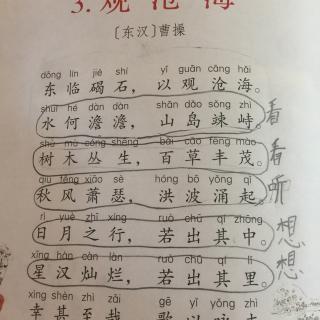 3. 观沧海
〔东汉〕曹操
dōng lín jié shí yǐ guān cāng hǎi
东临碣石，以观沧海。
shuǐ hé dàn dàn shān dǎo sǒng zhì
水何澹澹，山岛竦峙。看
shù mù cóng shēng bǎi cǎo fēng mào
树木丛生，百草丰茂。看
qiū fēng xiāo sè hóng bō yǒng qǐ
秋风萧瑟，洪波涌起。听
rì yuè zhī xíng ruò chū qí zhōng
日月之行，若出其中。想
xīng hàn càn làn ruò chū qí lǐ
星汉灿烂，若出其里。想
xìng shèn zhì zāi gē yǐ yǒng zhì
幸甚至哉